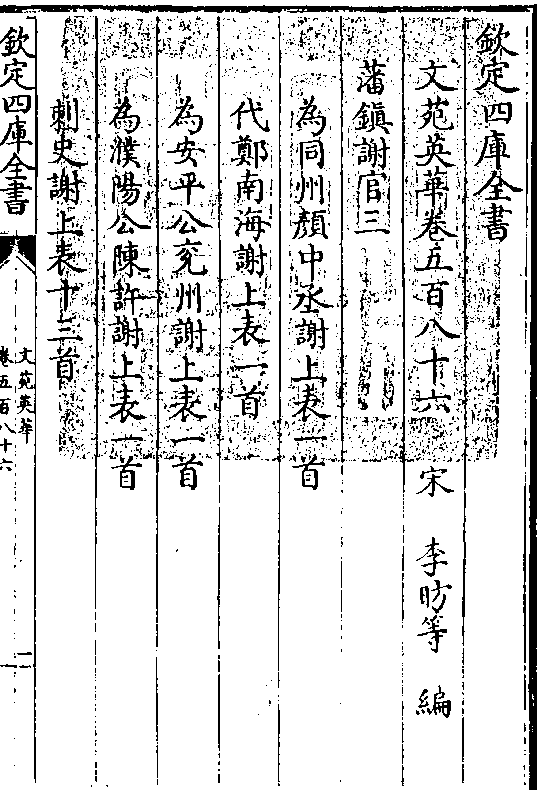 欽定四庫全書
文苑英華卷五百八十六 宋 李昉等 編
藩鎮謝官三
為同州顏中丞謝上表一首
代鄭南海謝上表一首
為安平公兖州謝上表一首
為濮陽公陳許謝上表一首
刺史謝上表十三首
欽定四庫全書
文苑英華
卷五百八十六